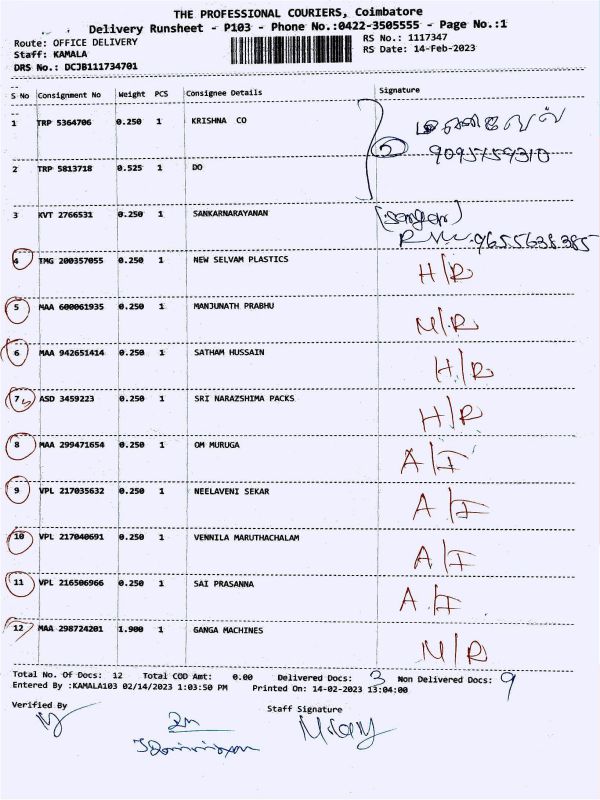 THE PROFESSIONAL COURIERS, Coimbatore
Delivery Runsheet - P103 - Phone No.:0422-3505555 - Page No.:1
Route: OFFICE DELIVERY RS No.: 1117347
Staff: KAMALA RS Date: 14-Feb-2023
DRS No.: DCJB111734701
S No Consignment No Weight PCS Consignee Details Signature
1 TRP 5364706 0.250 1 KRISHNA CO
2 TRP 5813718 0.525 1 DO 2 9095759310
3 KVT 2766531 0.250 1 SANKARNARAYANAN
9655638385
4 TMG 200357055 0.250 1 NEW SELVAM PLASTICS H/R
5 MAA 600061935 0.250 1 MANJUNATH PRABHU M/R
6 MAA 942651414 0.250 1 SATHAM HUSSAIN H/R
7 ASD 3459223 0.250 1 SRI NARAZSHIMA PACKS H/R
8 MAA 299471654 0.250 1 OM MURUGA A/I
9 VPL 217035632 0.250 1 NEELAVENI SEKAR A/I
10 VPL 217040691 0.250 1 VENNILA MARUTHACHALAM A/I
11 VPL 216506966 0.250 1 SAI PRASANNA A/I
12 MAA 298724201 1.900 1 GANGA MACHINES M/R
Total No. Of Docs: 12 Total COD Amt: 0.00 Delivered Docs: 3 Non Delivered Docs: 9
Entered By :KAMALA103 02/14/2023 1:03:50 PM Printed On: 14-02-2023 13:04:00
Verified By Staff Signature